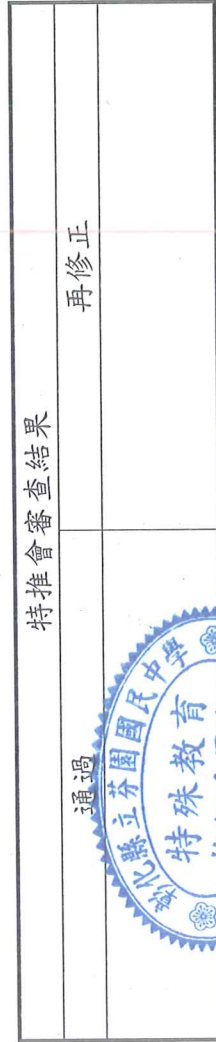 特推會審查結果
通過 再修正
彰化縣立芬園國民中學
特殊教育